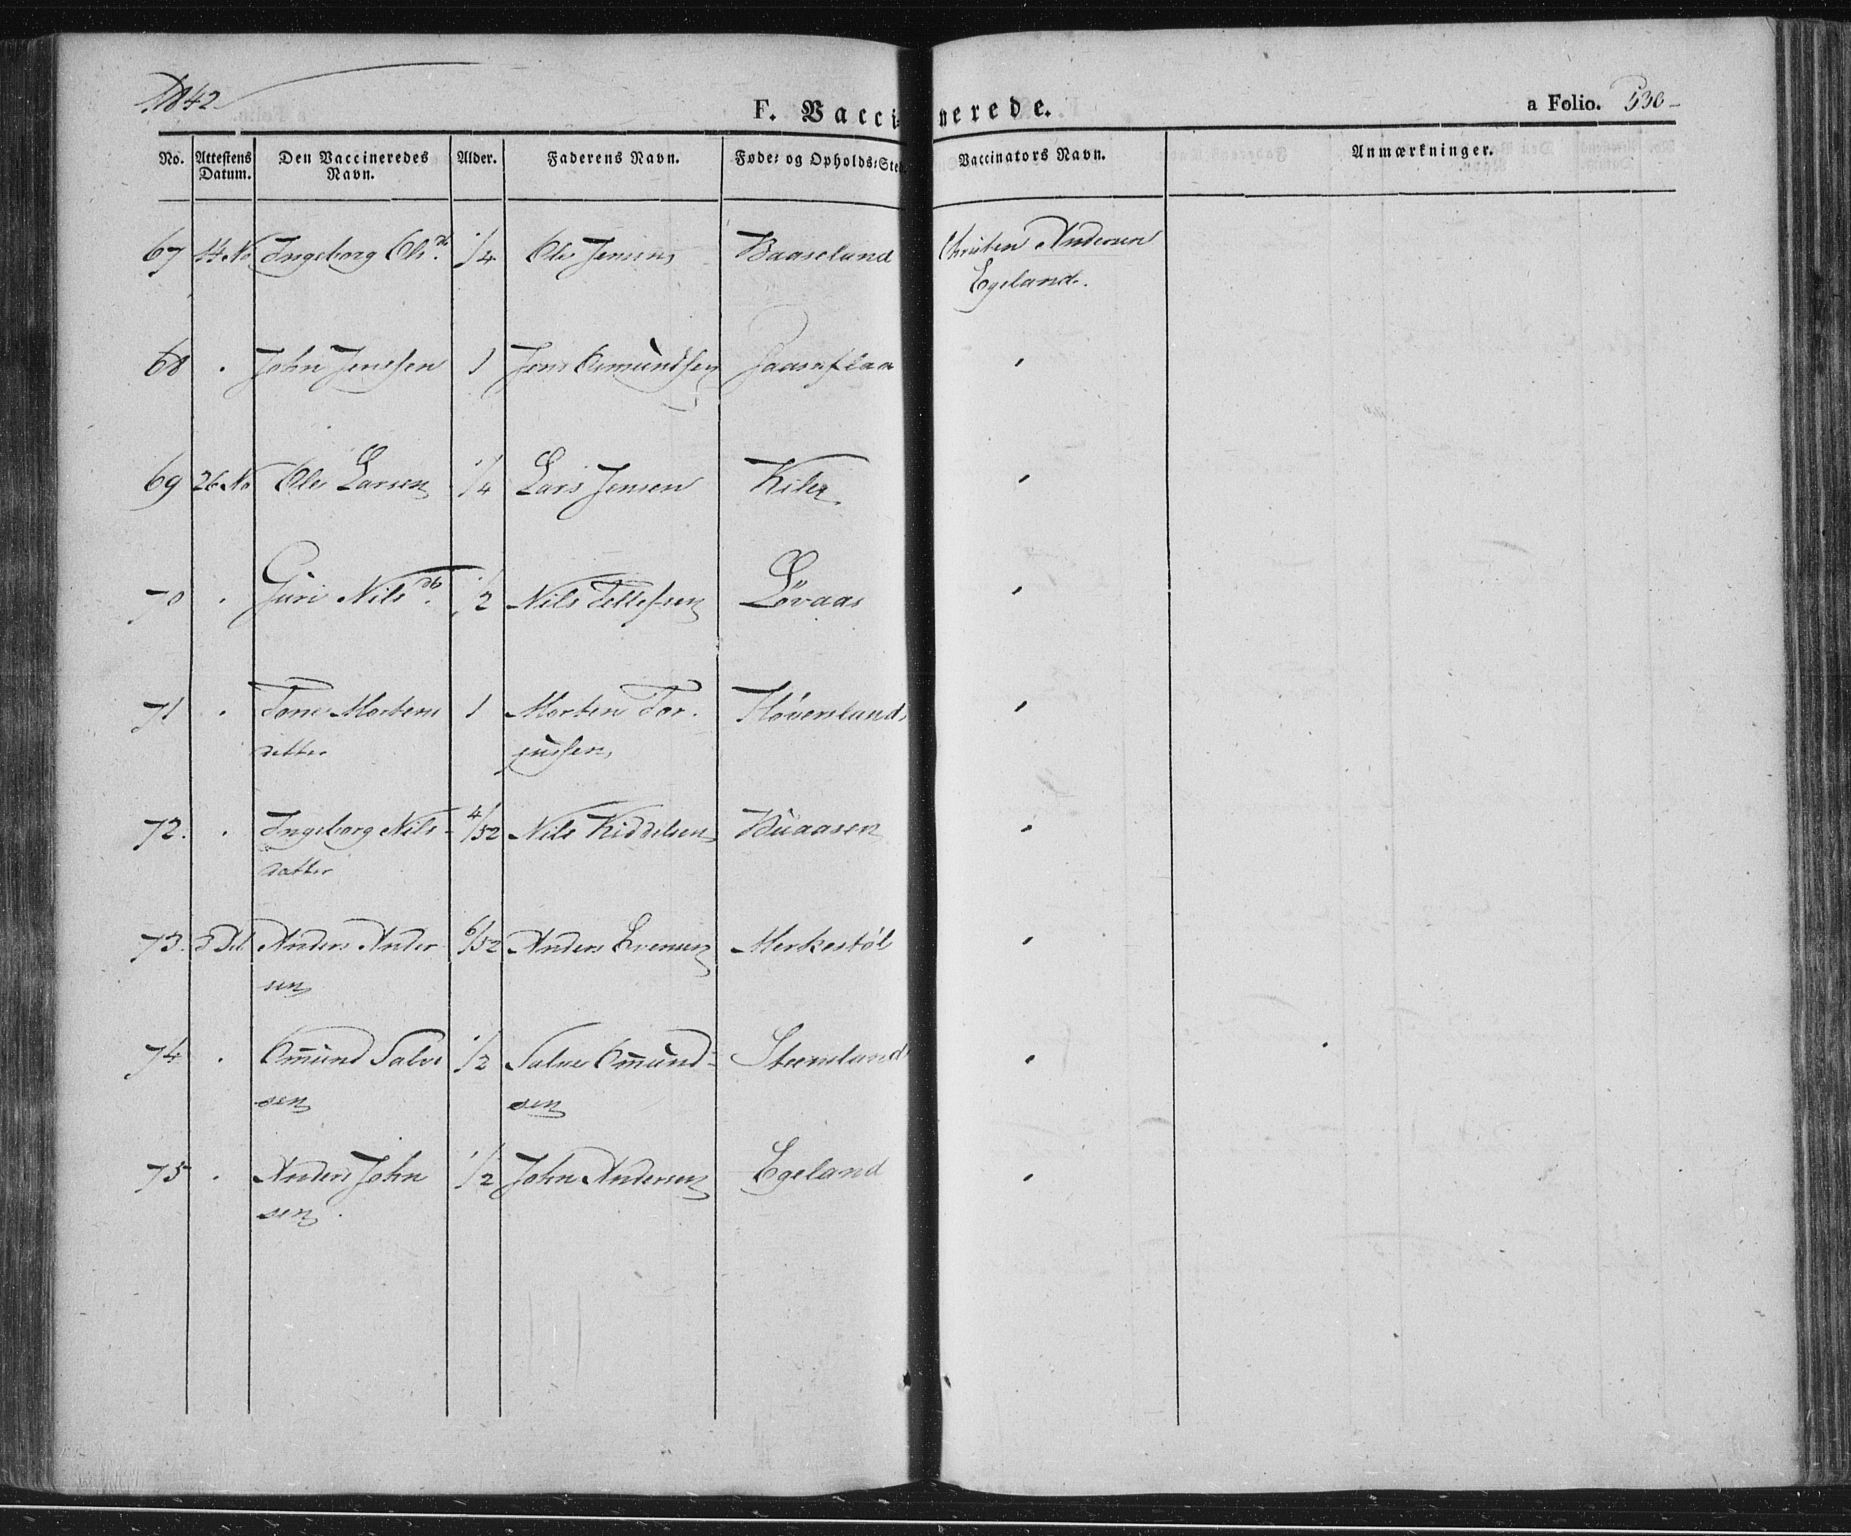 1842
F. Vaccinerede.
a Folio. 530
No. Attestens Datum. Den Vaccineredes Navn. Alder. Faderens Navn. Føde- og Opholds-Sted Vaccinators Navn. Anmærkninger.
67 14 No Ingeborg Ols d. 1/4 Ole Jensen Baaseland Christen Andersen
Egeland.
68 . John Jenssen 1 Jens Omundsen
69 26 No Ole Larsen 1/4 Lars Jensen Kiler
70 . Guri Nils d. 1/2 Nils Tellefsen Løvaas
71 . Tone Mortens 1 Morten Tor- Høvenland
datter jussen,
72. . Ingeborg Nils- 4/52 Nils Kiddelsen Buaasen
datter
73. 3 Anders Ander 6/52 Anders Evensen Merkestøl
sen
74 . Omund Salve 1/2 Salve Omund- Steensland
sen sen
75 . Anders John 1/2 John Andersen Egeland
sen.